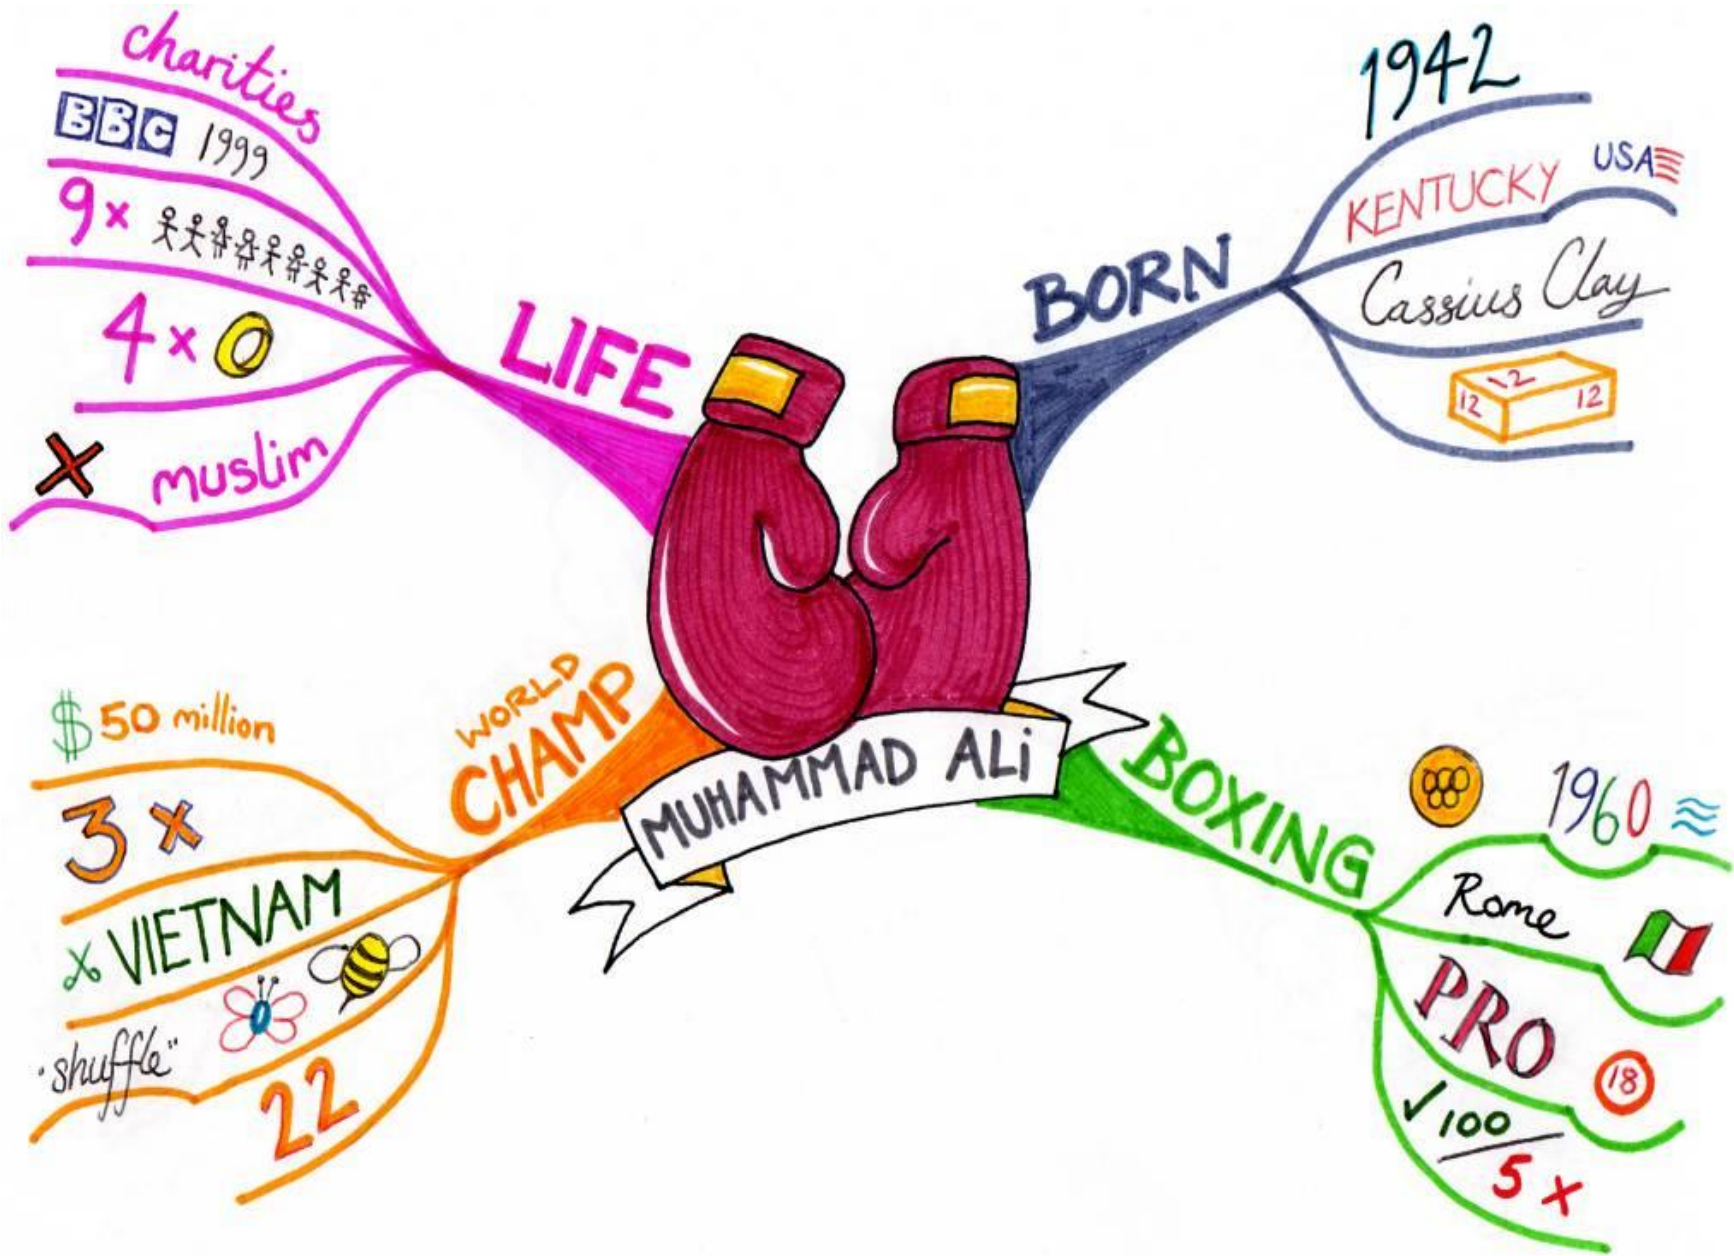 MUHAMMAD ALi
BORN
1942
KENTUCKY USA
Cassius Clay
12
12 12
BOXING
1960
Rome
PRO 18
✓ 100
5 x
WORLD
CHAMP
$ 50 million
3 x
VIETNAM
"shuffle"
22
LIFE
charities
BBC 1999
9x
4 x
muslim